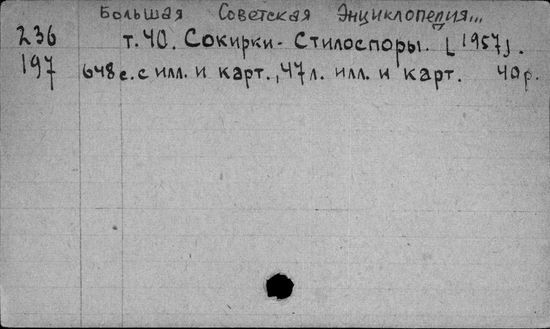 Большая Советская Энциклопедия...
236 т. 40. Сокирки - Стилоспоры. [1957].
197 648 с. с илл. и карт., 47 л. илл. и карт. 40 р.